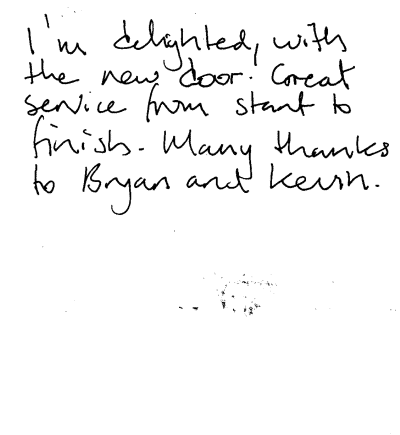 I'm delighted, with
the new door. Great
service from start to
finish. Many thanks
to Bryan and Kevin.